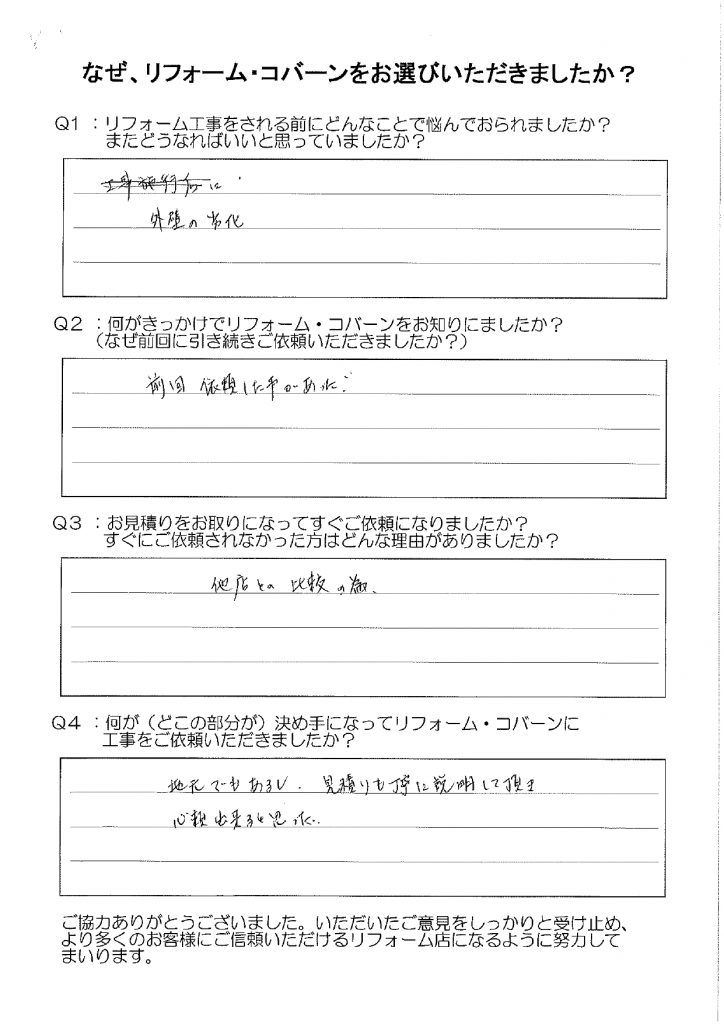 なぜ、リフォーム・コバーンをお選びいただきましたか?
Q1 :リフォーム工事をされる前にどんなことで悩んでおられましたか?
またどうなればいいと思っていましたか?
外壁の劣化
Q2 :何がきっかけでリフォーム・コバーンをお知りにましたか?
(なぜ前回に引き続きご依頼いただきましたか?)
前回 依頼した事があった。
Q3 :お見積りをお取りになってすぐご依頼になりましたか?
すぐにご依頼されなかった方はどんな理由がありましたか?
他店との 比較の為、
Q4 :何が(どこの部分が)決め手になってリフォーム・コバーンに
工事をご依頼いただきましたか?
地元でもあるし、見積りも丁寧に説明して頂き
出来ると思った。
ご協力ありがとうございました。いただいたご意見をしっかりと受け止め、
より多くのお客様にご信頼いただけるリフォーム店になるように努力して
まいります。